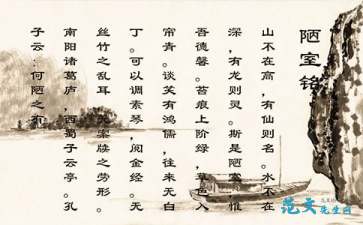 陋室铭
山不在高，有仙则名。水不在
深，有龙则灵。斯是陋室，惟
吾德馨。苔痕上阶绿，草色入
帘青。谈笑有鸿儒，往来无白
丁。可以调素琴，阅金经。无
丝竹之乱耳，无案牍之劳形。
南阳诸葛庐，西蜀子云亭。孔
子云：何陋之有
范文先生网